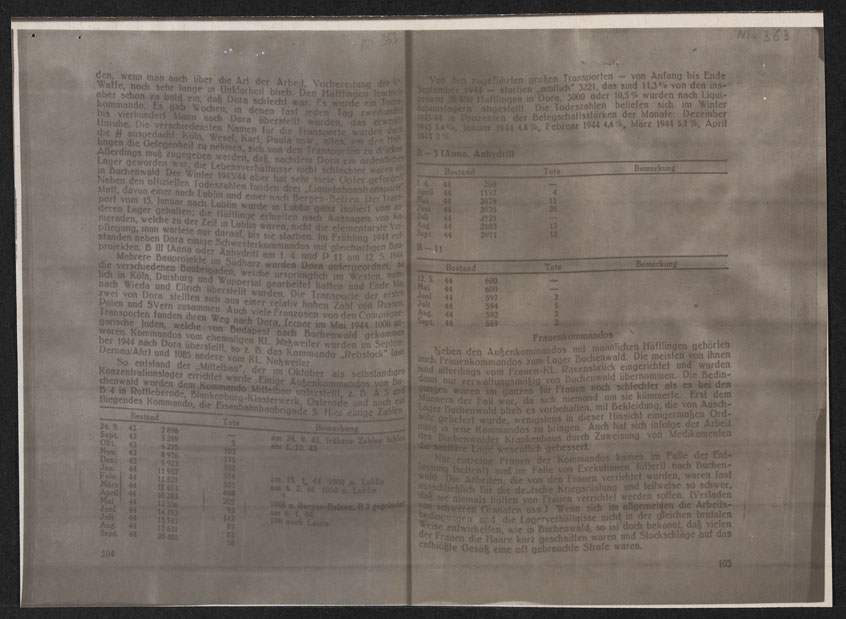 NI-363
den, wenn man auch über die Art der Arbeit, Vorbereitung der V-
Waffe, noch sehr lange in Unklarheit blieb. Den Häftlingen leuchtete
aber schon so bald ein, daß Dora schlecht war. Es wurde ein Todes-
kommando. Es gab Wochen, in denen fast jeden Tag zweihundert
bis vierhundert Mann nach Dora überstellt wurden, das erweckte
Unruhe. Die verschiedensten Namen für die Transporte wurden durch
die SS ausgedacht: Köln, Wesel, Karl, Paula usw., alles, um den Häft-
lingen die Gelegenheit zu nehmen, sich von den Transporten zu drücken.
Allerdings muß zugegeben werden, daß, nachdem Dora ein ordentliches
Lager geworden war, die Lebensverhältnisse nicht schlechter waren als
in Buchenwald. Der Winter 1943/44 aber hat sehr viele Opfer gefordert.
Neben den offiziellen Todeszahlen fanden drei „Liquidationstransporte"
statt, davon einer nach Lublin und einer nach Bergen-Belsen. Der Trans-
port vom 15. Januar nach Lublin wurde in Lublin ganz isoliert vom an-
deren Lager gehalten; die Häftlinge erhielten nach Aussagen von Ka-
meraden, welche zu der Zeit in Lublin waren, nicht die elementarste Ver-
pflegung, man wartete nur darauf, bis sie starben. Im Frühling 1944 ent-
standen neben Dora einige Schwesterkommandos mit gleichartigen Bau-
projekten. B III (Anna oder Anhydrit) am 1. 4. und B 11 am 12. 5. 1944
Mehrere Bauprojekte im Südharz wurden Dora untergeordnet, so
die verschiedenen Baubrigaden, welche ursprünglich im Westen, näm-
lich in Köln, Duisburg und Wuppertal gearbeitet hatten und Ende Mai
nach Wieda und Ellrich überstellt wurden. Die Transporte der ersten
zwei von Dora stellten sich aus einer relativ hohen Zahl von Russen,
Polen und SVern zusammen. Auch viele Franzosen von den Compiègne-
Transporten fanden ihren Weg nach Dora, ferner im Mai 1944 1000 un-
garische Juden, welche von Budapest nach Buchenwald gekommen
waren. Kommandos vom ehemaligen KL. Natzweiler wurden im Septem-
ber 1944 nach Dora überstellt, so z. B. das Kommando „Rebstock" (aus
Dernau/Ahr) und 1085 andere vom KL. Natzweiler.
So entstand der „Mittelbau", der im Oktober als selbständiges
Konzentrationslager errichtet wurde. Einige Außenkommandos von Bu-
chenwald wurden dem Kommando Mittelbau unterstellt, z. B. A 5 und
B 4 in Rottleberode, Blankenburg-Klosterwerk, Osterode und noch ein
fliegendes Kommando, die Eisenbahnbaubrigade 5. Hier einige Zahlen
Bestand Tote Bemerkung
24. 9. 43 2 896 — am 24. 9. 43, frühere Zahlen fehlen
Sept. 43 3 289 5 am 1. 10. 43
Okt. 43
Nov. 43
Dez. 43
Jan. 44 am 15. 1. 44 1000 n. Lublin
Febr. 44 am 6. 2. 44 1000 n. Lublin
März 44
April 44 1000 n. Bergen-Belsen, B 3 gegründet
Mai 44
Juni 44
Juli 44
Aug. 44
Sept. 44
104
NI-363
Von den zugeführten großen Transporten — von Anfang bis Ende
September 1944 — starben „amtlich" 3221, das sind 11,3 % von den ins-
gesamt 28 600 Häftlingen in Dora, 3000 oder 10,5 % wurden nach Liqui-
dationslagern abgestellt. Die Todeszahlen beliefen sich im Winter
1943/44 in Prozenten der Belegschaftsstärken der Monate: Dezember
1943 8,4 %, Januar 1944 4,8 %, Februar 1944 4,4 %, März 1944 5,3 %, April
1944 2 %.
B — 3 (Anna, Anhydrit)
Bestand Tote Bemerkung
1. 4. 44 —
April 44 1152 4
Mai 44 2029 11
Juni 44
Juli 44 2121 —
Aug. 44 2103 12
Sept. 44 2011 12
B — 11
Bestand Tote Bemerkung
12. 5. 44 600 —
Mai 44 600 —
Juni 44 597 3
Juli 44 594 3
Aug. 44 592 2
Sept. 44 589 2
Frauenkommandos
Neben den Außenkommandos mit männlichen Häftlingen gehörten
auch Frauenkommandos zum Lager Buchenwald. Die meisten von ihnen
sind allerdings vom Frauen-KL. Ravensbrück eingerichtet und wurden
dann nur verwaltungsmäßig von Buchenwald übernommen. Die Bedin-
gungen waren im ganzen für Frauen noch schlechter als es bei den
Männern der Fall war, da sich niemand um sie kümmerte. Erst dem
Lager Buchenwald blieb es vorbehalten, mit Bekleidung, die von Ausch-
witz geliefert wurde, wenigstens in dieser Hinsicht einigermaßen Ord-
nung in jene Kommandos zu bringen. Auch hat sich infolge der Arbeit
des Buchenwalder Krankenbaus durch Zuweisung von Medikamenten
die sanitäre Lage wesentlich gebessert.
Nur einzelne Frauen der Kommandos kamen im Falle der Ent-
lassung (selten!) und im Falle von Exekutionen (öfter!) nach Buchen-
wald. Die Arbeiten, die von den Frauen verrichtet wurden, waren fast
ausschließlich für die deutsche Kriegsrüstung und teilweise so schwer,
daß sie niemals hätten von Frauen verrichtet werden sollen. (Verladen
von schweren Granaten usw.) Wenn sich im allgemeinen die Arbeits-
bedingungen und die Lagerverhältnisse nicht in der gleichen brutalen
Weise entwickelten, wie in Buchenwald, so ist doch bekannt, daß vielen
der Frauen die Haare kurz geschnitten waren und Stockschläge auf das
entblößte Gesäß eine oft gebrauchte Strafe waren.
105